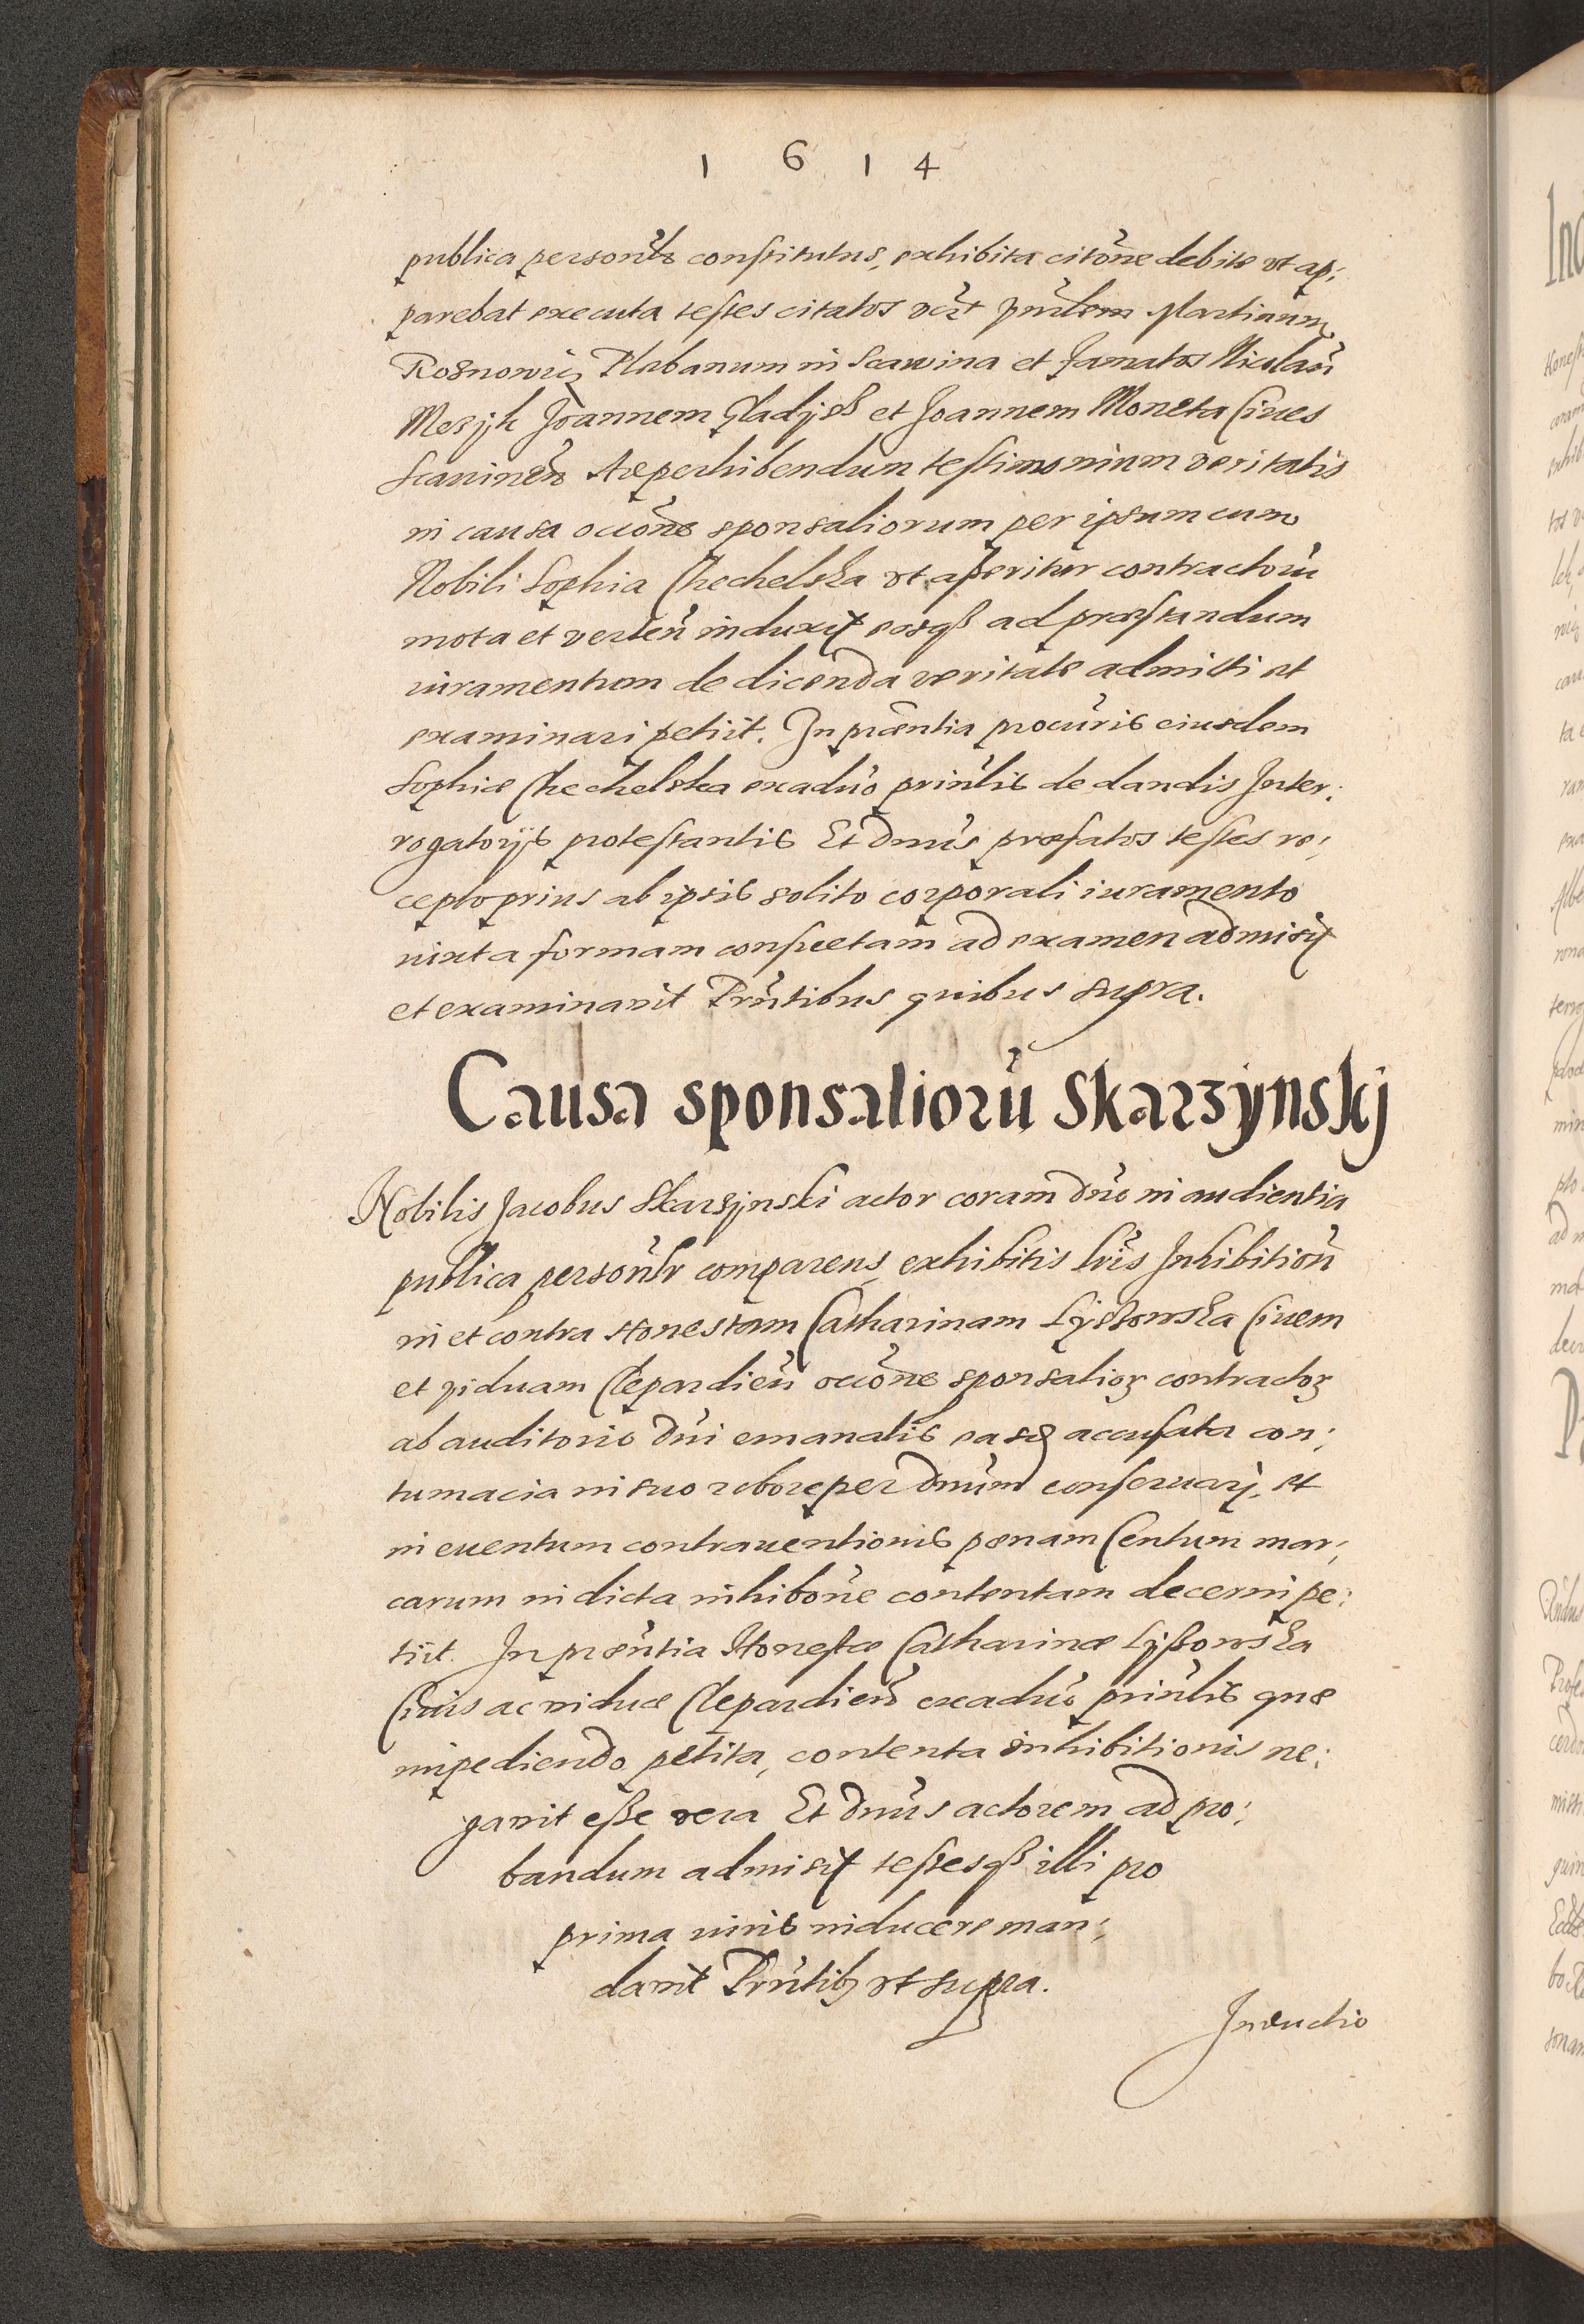 1 6 1 4
publica personłr constitutus, exhibita citõne debite vt ap:
parebat executa testes citatos včt Martinum
Rosnowicz Plebanum in Scawina et famatos Nicolaũ
Mezyk Joannem Gladijsß et Joannem Moneta Ciues
Scauineñ Ad perhibendum testimonium veritatis
in causa occõne sponsaliorum per ipsum cum
Nobili Sophia Chechelska vt asseritur contractorũ
mota et verteñ induxit eosqß ad præstandum
iuramentum de dicenda veritate admitti et
examinari petiit. In præntia procuris eiusdem
Sophiæ Chechelska exaduo prinłis de dandis Inter:
rogatorijs protestantis Et Dnus præfatos testes re:
cepto prius ab ipsis solito corporali iuramento
iuxta formam consuetam ad examen admisit
et examinauit Prñtibus quibus supra.
Causa sponsaliorũ Skarzynskj
Nobilis Jacobus Skarzynski actor coram dño in audientia
publica personłr comparens, exhibitis lris Inhibitioñ
in et contra Honestam Catharinam Lyssowska Ciuem
et viduam Clepardieñ occõne sponsalioꝝ contractoꝝ
ab auditorio Dñi emanatis easqꝫ accusata con:
tumacia in suo robore per Dnum conseruarj, et
in euentum contrauentionis pœnam Centum mar:
carum in dicta inhibõne contentam decerni pe:
tiit. In præñtia Honestæ Catharinæ Lyssowska
Ciuis ac viduæ Clepardieñ exaduo prinłis quæ
impediendo petita, contenta inhibitionis ne:
gauit esse vera Et Dnus actorem ad pro:
bandum admisit testesqß illi pro
prima iuris inducere man:
dauit Prñtibꝫ vt supra.
Inductio